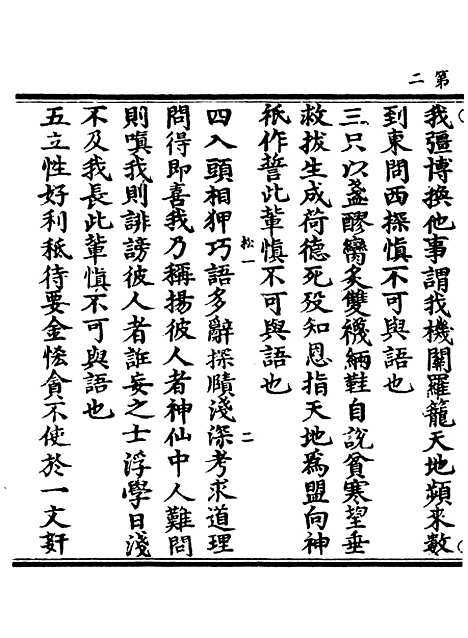 第二
我彊博換他事謂我機關羅籠天地頻來數
到東問西探慎不可與語也
三只以盞醪臠炙雙襪緉鞋自說貧寒望垂
救拔生成荷德死歿知恩指天地為盟向神
祇作誓此輩慎不可與語也
松一 二
四入頭相狎巧語多辭探賾淺深考求道理
問得即喜我乃稱揚彼人者神仙中人難問
則嗔我則誹謗彼人者誑妄之士浮學日淺
不及我長此輩慎不可與語也
五立性好利秪待要金恡貪不使於一文姧